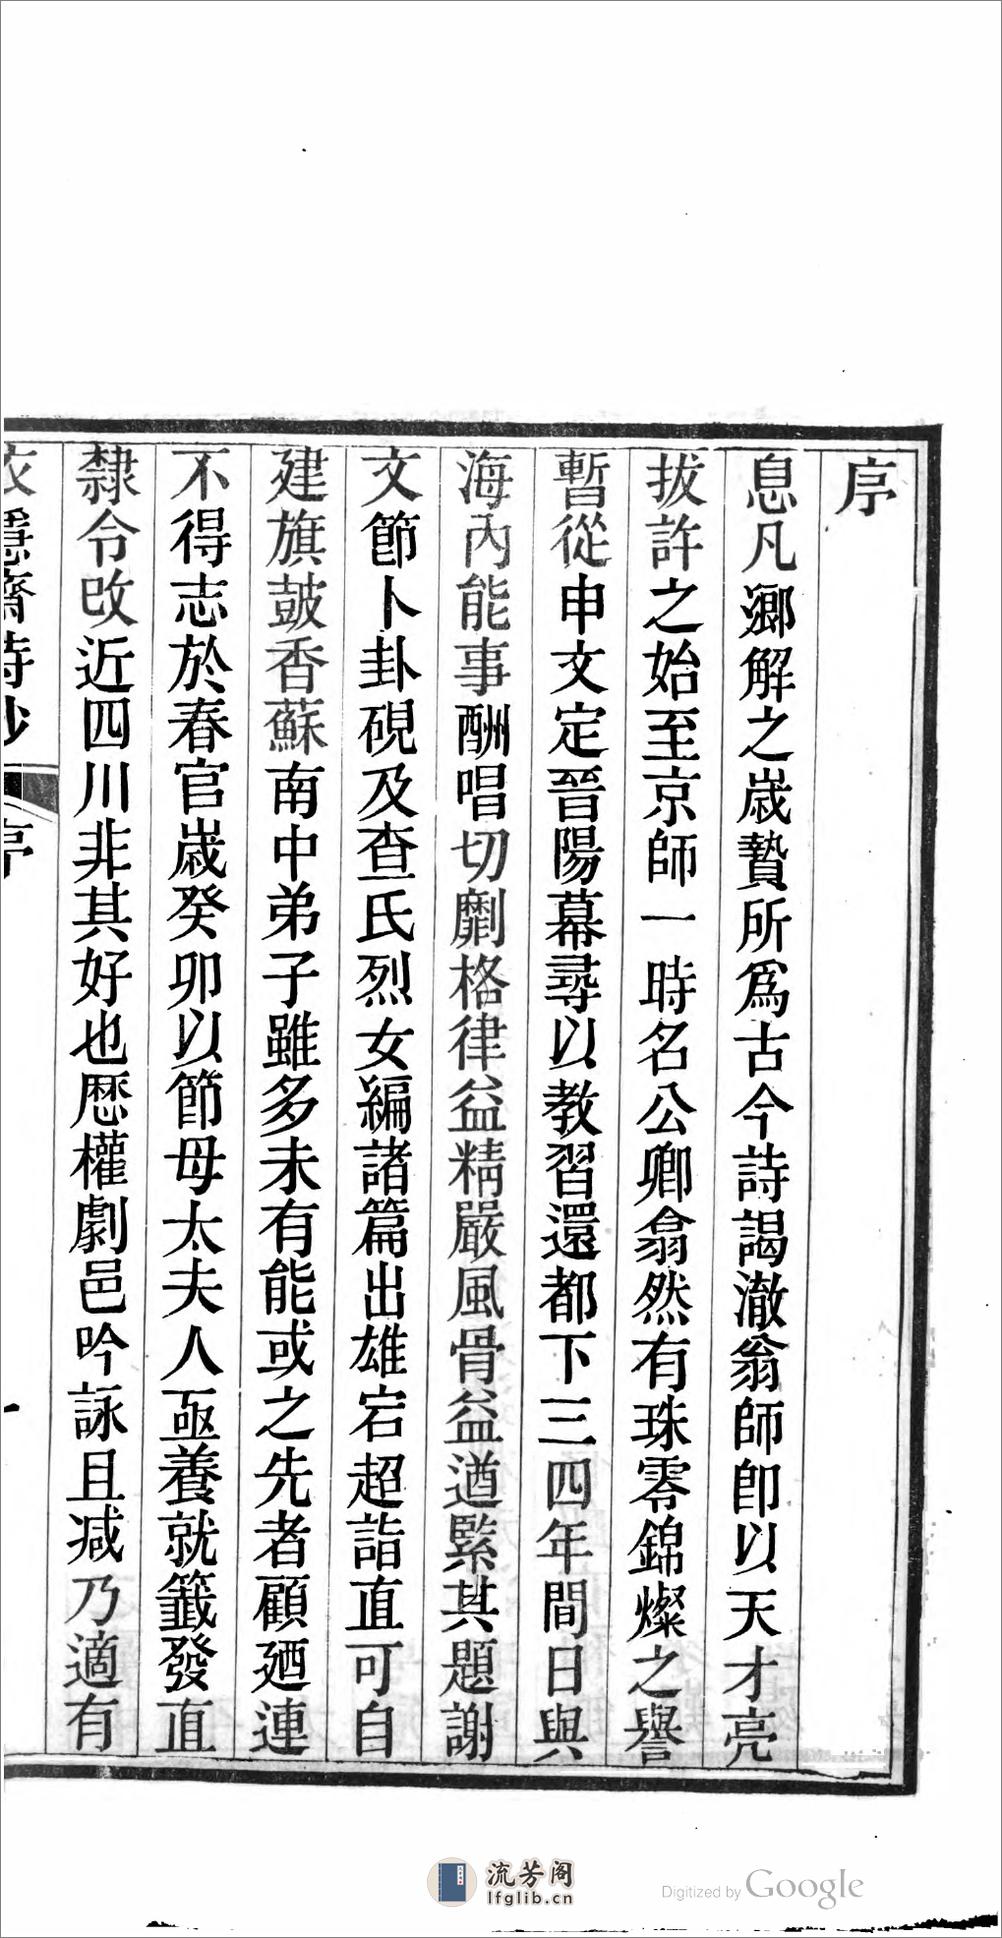 序
息凡鄉解之歲贄所爲古今詩謁澈翁師卽以天才亮
拔許之始至京師一時名公卿翕然有珠零錦燦之譽
暫從申文定晉陽幕尋以教習還都下三四年間日與
海內能事酬唱切劘格律益精嚴風骨益遒緊其題謝
文節卜卦硯及查氏烈女編諸篇出雄宕超詣直可自
建旗鼓香蘇南中弟子雖多未有能或之先者顧廼連
不得志於春官歲癸卯以節母太夫人亟養就籤發直
隸令改近四川非其好也歷權劇邑吟詠且减乃適有
隱齋詩鈔
序
一
流芳阁
lfglib.cn
Digitized by Google